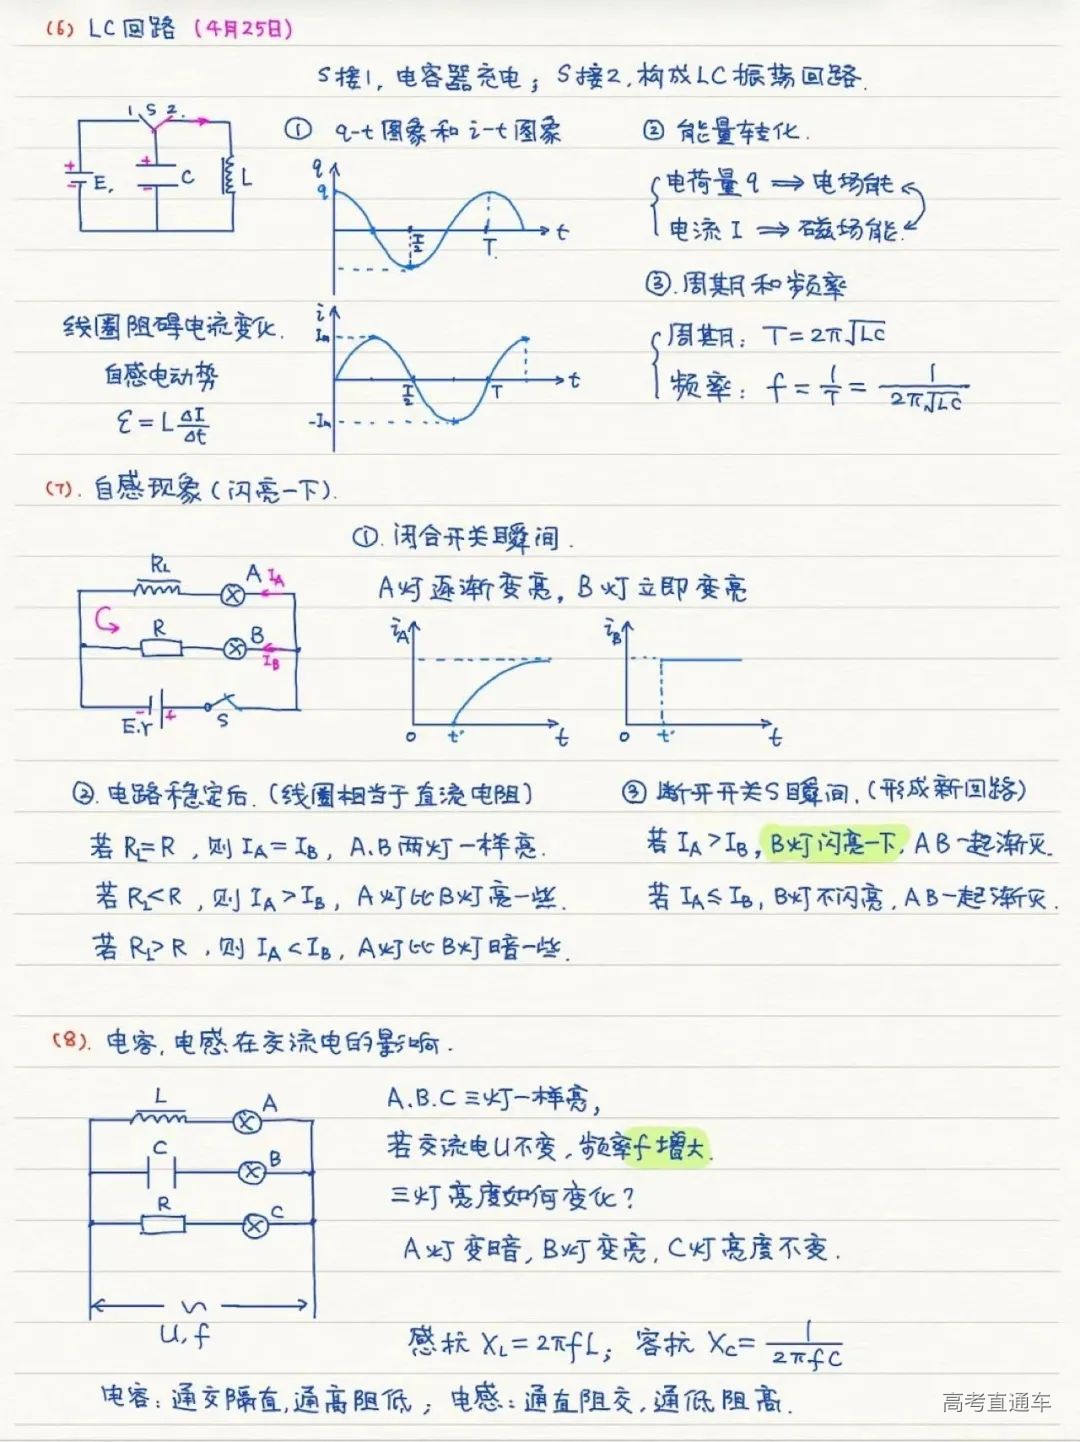 (6) LC回路 (4月25日)
S接1, 电容器充电; S接2, 构成LC振荡回路.
1 S 2
E, C L
① q-t图象和i-t图象
q
q
T/2 T t
i
Im
T/2 T t
-Im
② 能量转化.
电荷量q ⇒ 电场能
电流I ⇒ 磁场能
③.周期和频率
周期: T=2π√LC
频率: f=1/T=1/2π√LC
线圈阻碍电流变化.
自感电动势
ε=LΔI/Δt
(7). 自感现象(闪亮一下).
①. 闭合开关瞬间.
A灯逐渐变亮, B灯立即变亮
RL A IA
R B IB
E.r S
iA
0 t' t
iB
0 t' t
②. 电路稳定后. (线圈相当于直流电阻)
若RL=R, 则IA=IB, A.B两灯一样亮.
若RL<R, 则IA>IB, A灯比B灯亮一些.
若RL>R, 则IA<IB, A灯比B灯暗一些.
③ 断开开关S瞬间, (形成新回路)
若IA>IB, B灯闪亮一下, AB一起渐灭.
若IA≤IB, B灯不闪亮, AB一起渐灭.
(8). 电容, 电感在交流电的影响.
L A
C B
R C
U, f
A.B.C三灯一样亮,
若交流电U不变, 频率f增大.
三灯亮度如何变化?
A灯变暗, B灯变亮, C灯亮度不变.
感抗XL=2πfL; 容抗XC=1/2πfC
电容: 通交隔直, 通高阻低; 电感: 通直阻交, 通低阻高.
高考直通车